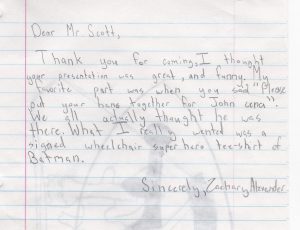 Dear Mr. Scott,
Thank you for coming, I thought
your presentation was great, and funny. My
favorite part was when you said "Please
put your hans together for John cena".
We all actually thought he was
there. What I really wanted was a
signed wheelchair super hero tee-shirt of
Batman.
Sincerely, Zachary Alexander.